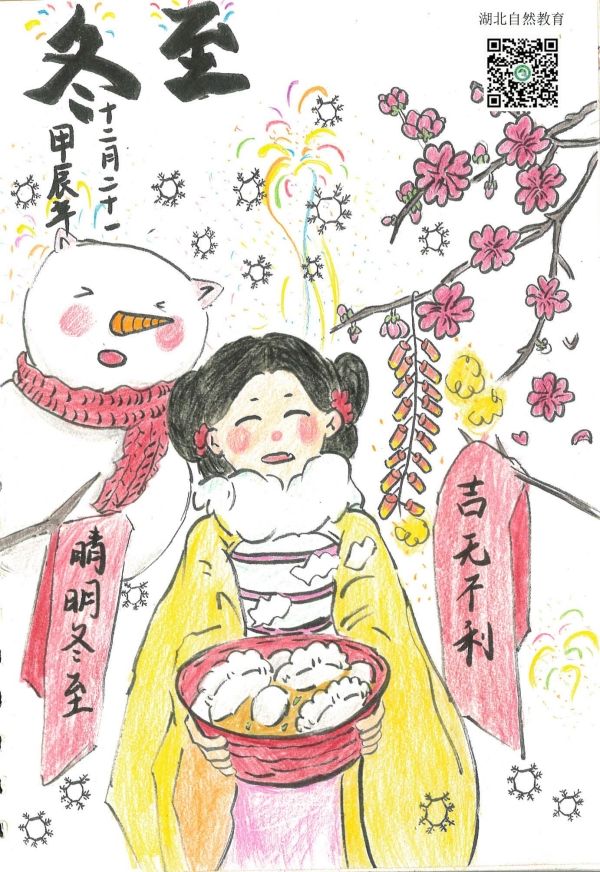 湖北自然教育
冬至
十二月二十一
甲辰年
晴明冬至
吉无不利